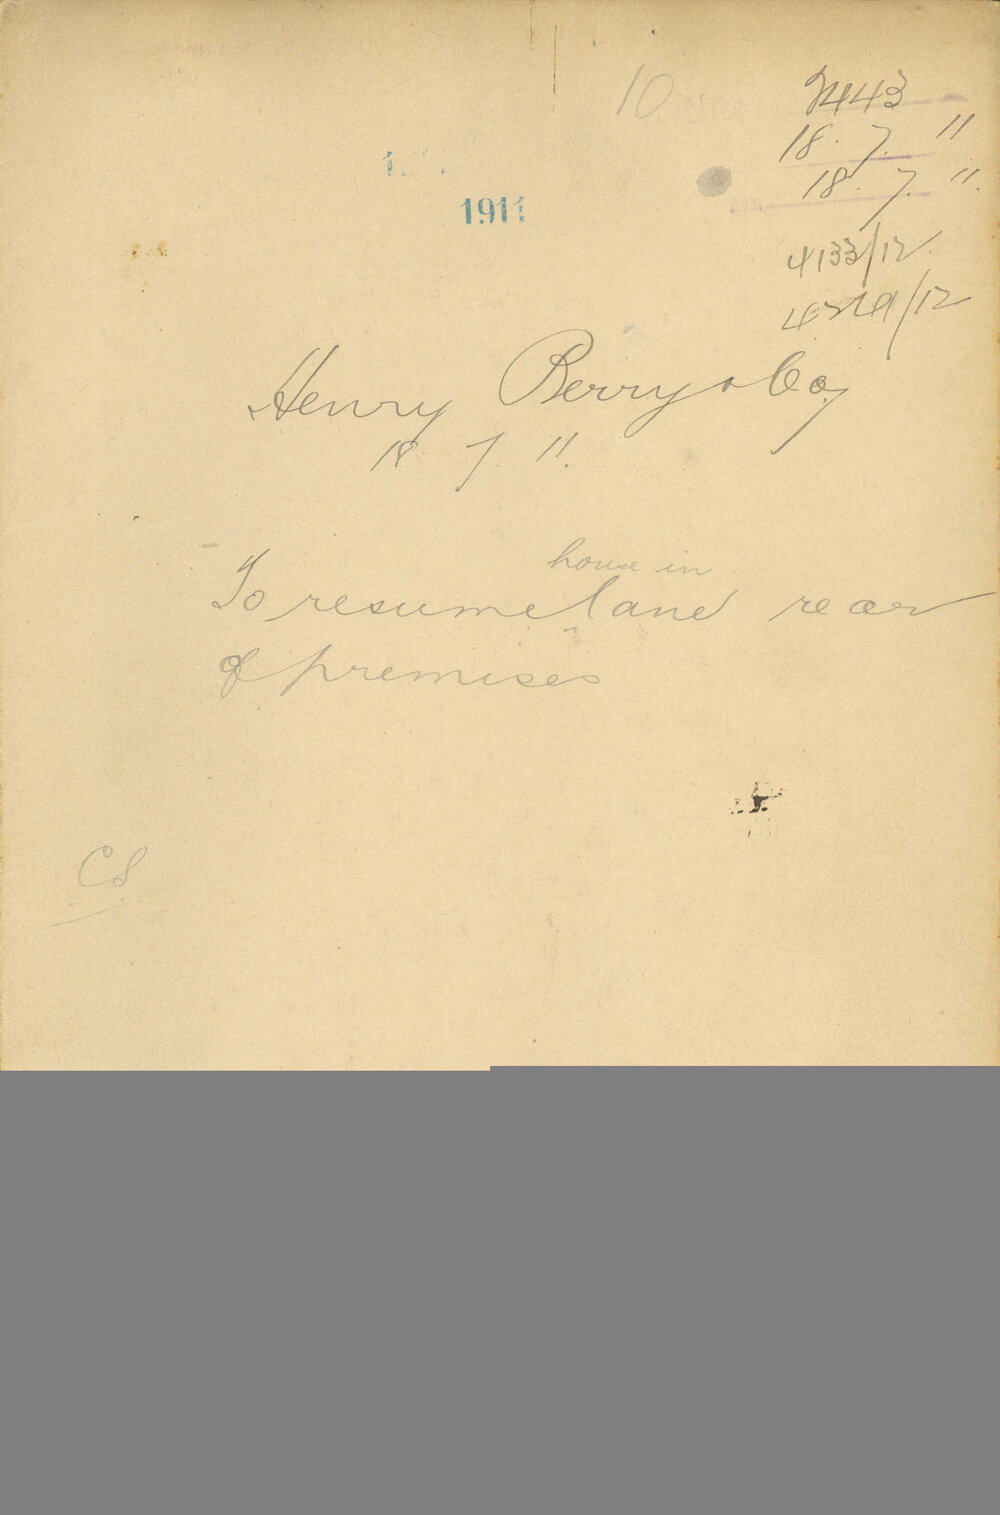 10
18 . 7 . 11
18 . 7 . 11.
1911
4133/12
Henry Berry & Co,
18. 7 11.
house in
To resume land rear
of premises
CS